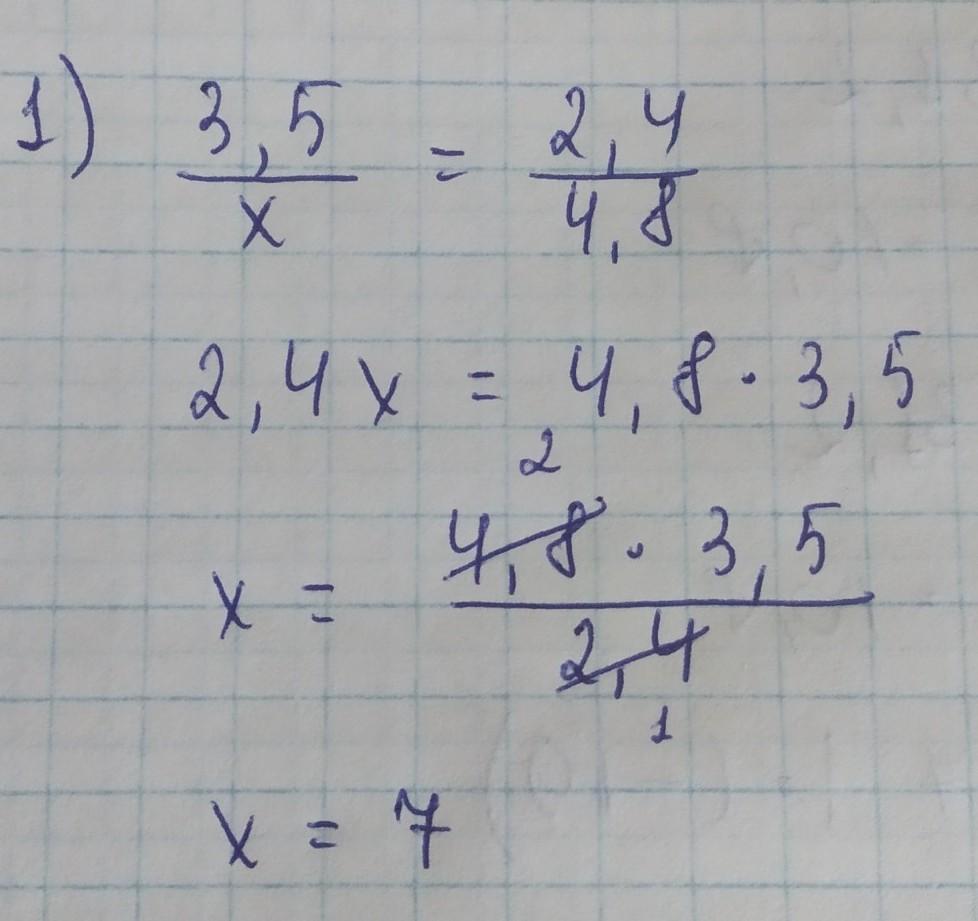 1) 3,5/x = 2,4/4,8
2,4x = 4,8 · 3,5
2
x = 4,8 · 3,5/2,4
1
x = 7